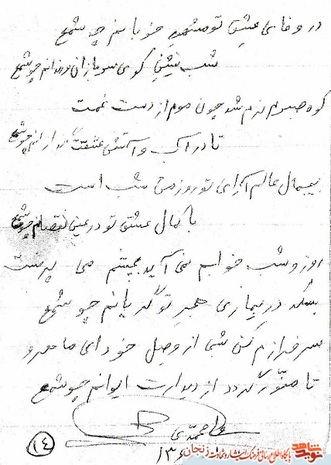 در وفای عشق تو مشهور خوبانم چو شمع
شب نشین کوی سربازان و رندانم چو شمع
کوه صبرم نرم شد چون موم از دست غمت
تا در آب و آتش عشقت گدازانم چو شمع
بی جمال عالم آرای تو روزم شب است
با کمال عشق تو در عین نقصانم چو شمع
روز و شب خوابم نمی آید به چشم می پرست
بسکه در بیماری هجر تو گریانم چو شمع
سرفرازم کن شبی از وصل خود ای ماهرو
تا منور گردد از دیدارت ایوانم چو شمع
۱۴
نوید شاهد
زنجان